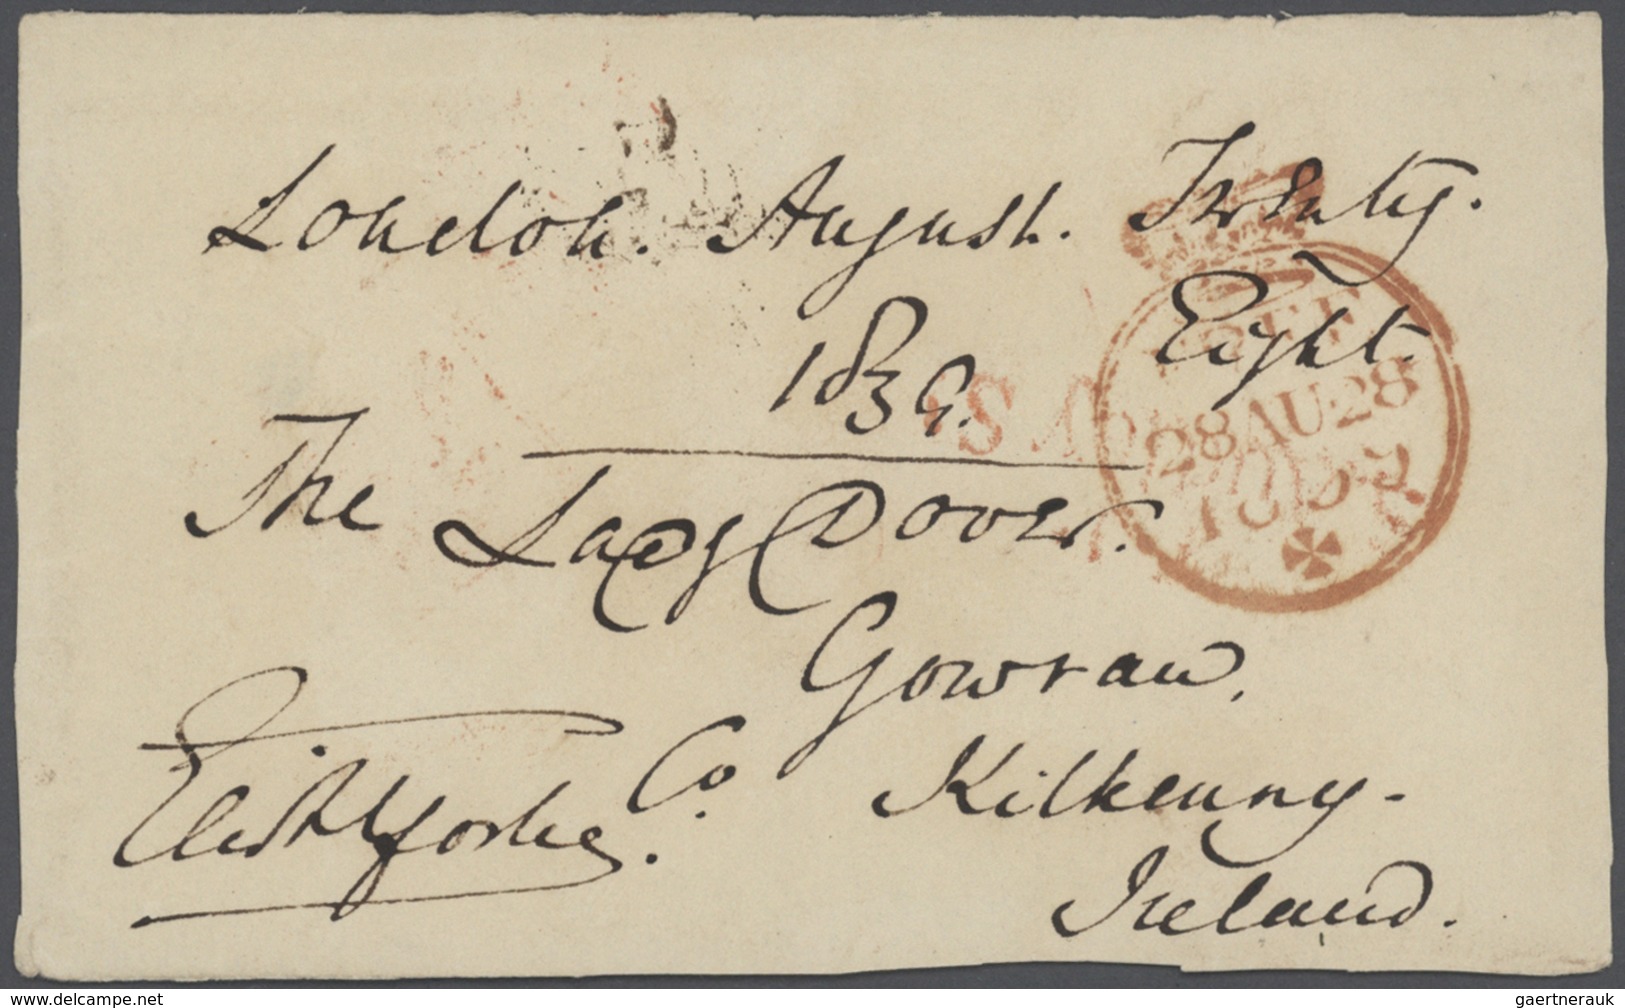 London. August. Twenty.
Eight.
1839.
The Lady Dover.
Gowran,
Co. Kilkenny.
Ireland.
FREE
28AU28
1839
www.delcampe.net
gaertnerauk